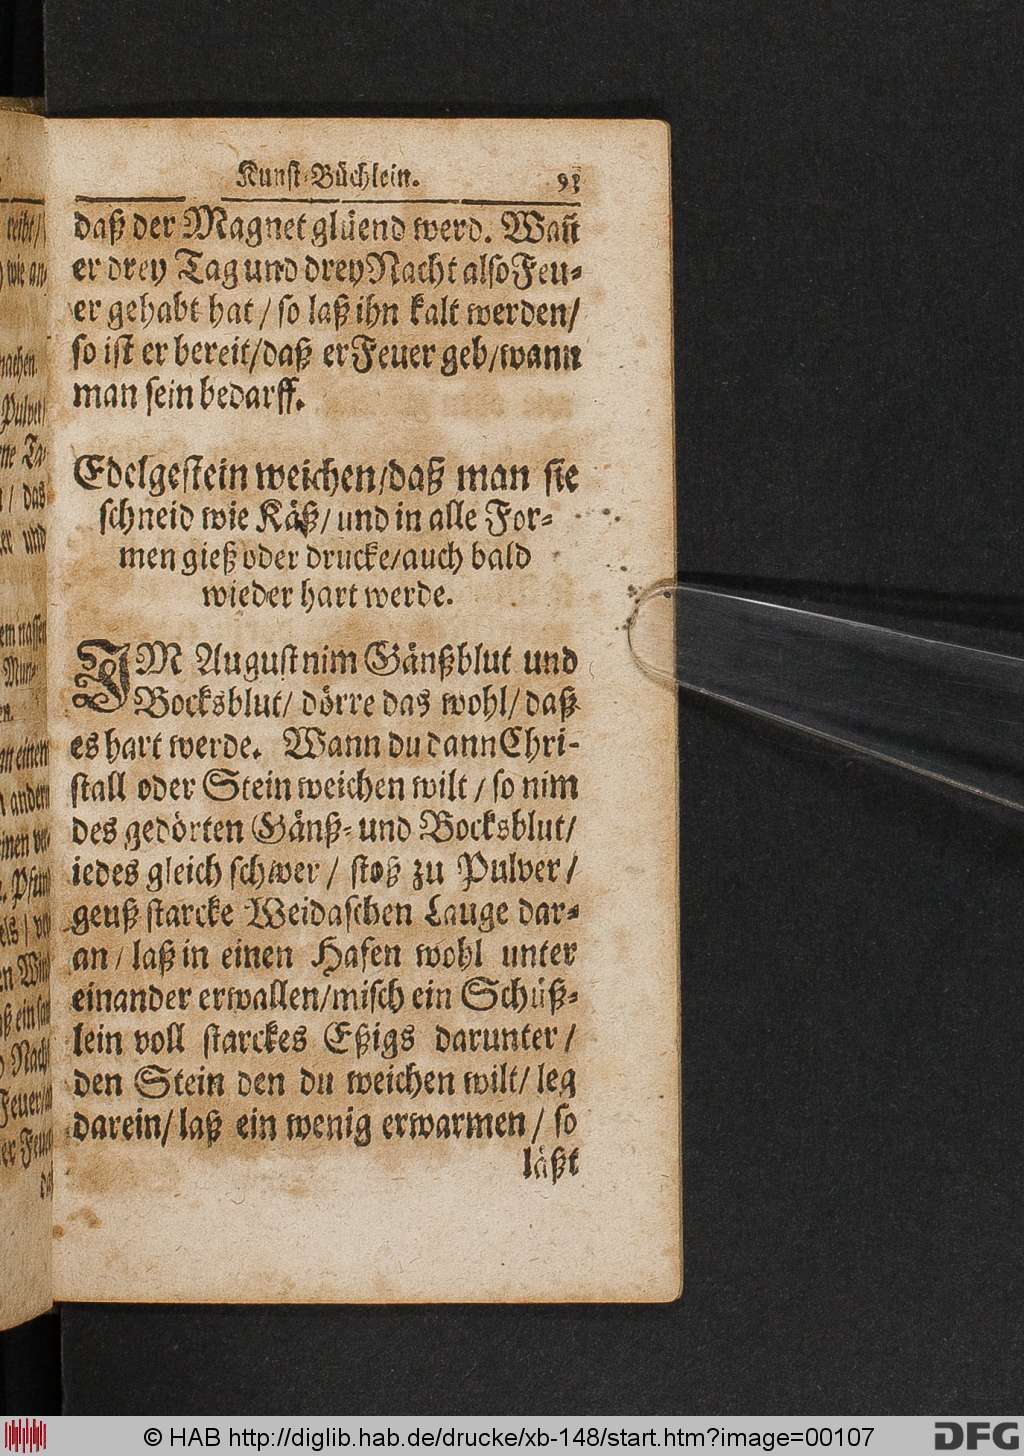 Kunst-Büchlein. 93
daß der Magnet glüend werd. Wañ
er drey Tag und drey Nacht also Feu-
er gehabt hat / so laß ihn kalt werden/
so ist er bereit/daß er Feuer geb/wann
man sein bedarff.
Edelgestein weichen/daß man sie
schneid wie Käß/ und in alle For-
men gieß oder drucke/auch bald
wieder hart werde.
IM August nim Gänßblut und
Bocksblut/ dörre das wohl/ daß
es hart werde. Wann du dann Chri-
stall oder Stein weichen wilt / so nim
des gedörten Gänß- und Bocksblut/
iedes gleich schwer / stoß zu Pulver /
geuß starcke Weidaschen Lauge dar-
an / laß in einen Hafen wohl unter
einander erwallen/misch ein Schüß-
lein voll starckes Eßigs darunter /
den Stein den du weichen wilt/ leg
darein/ laß ein wenig erwarmen / so
läßt
© HAB http://diglib.hab.de/drucke/xb-148/start.htm?image=00107
DFG